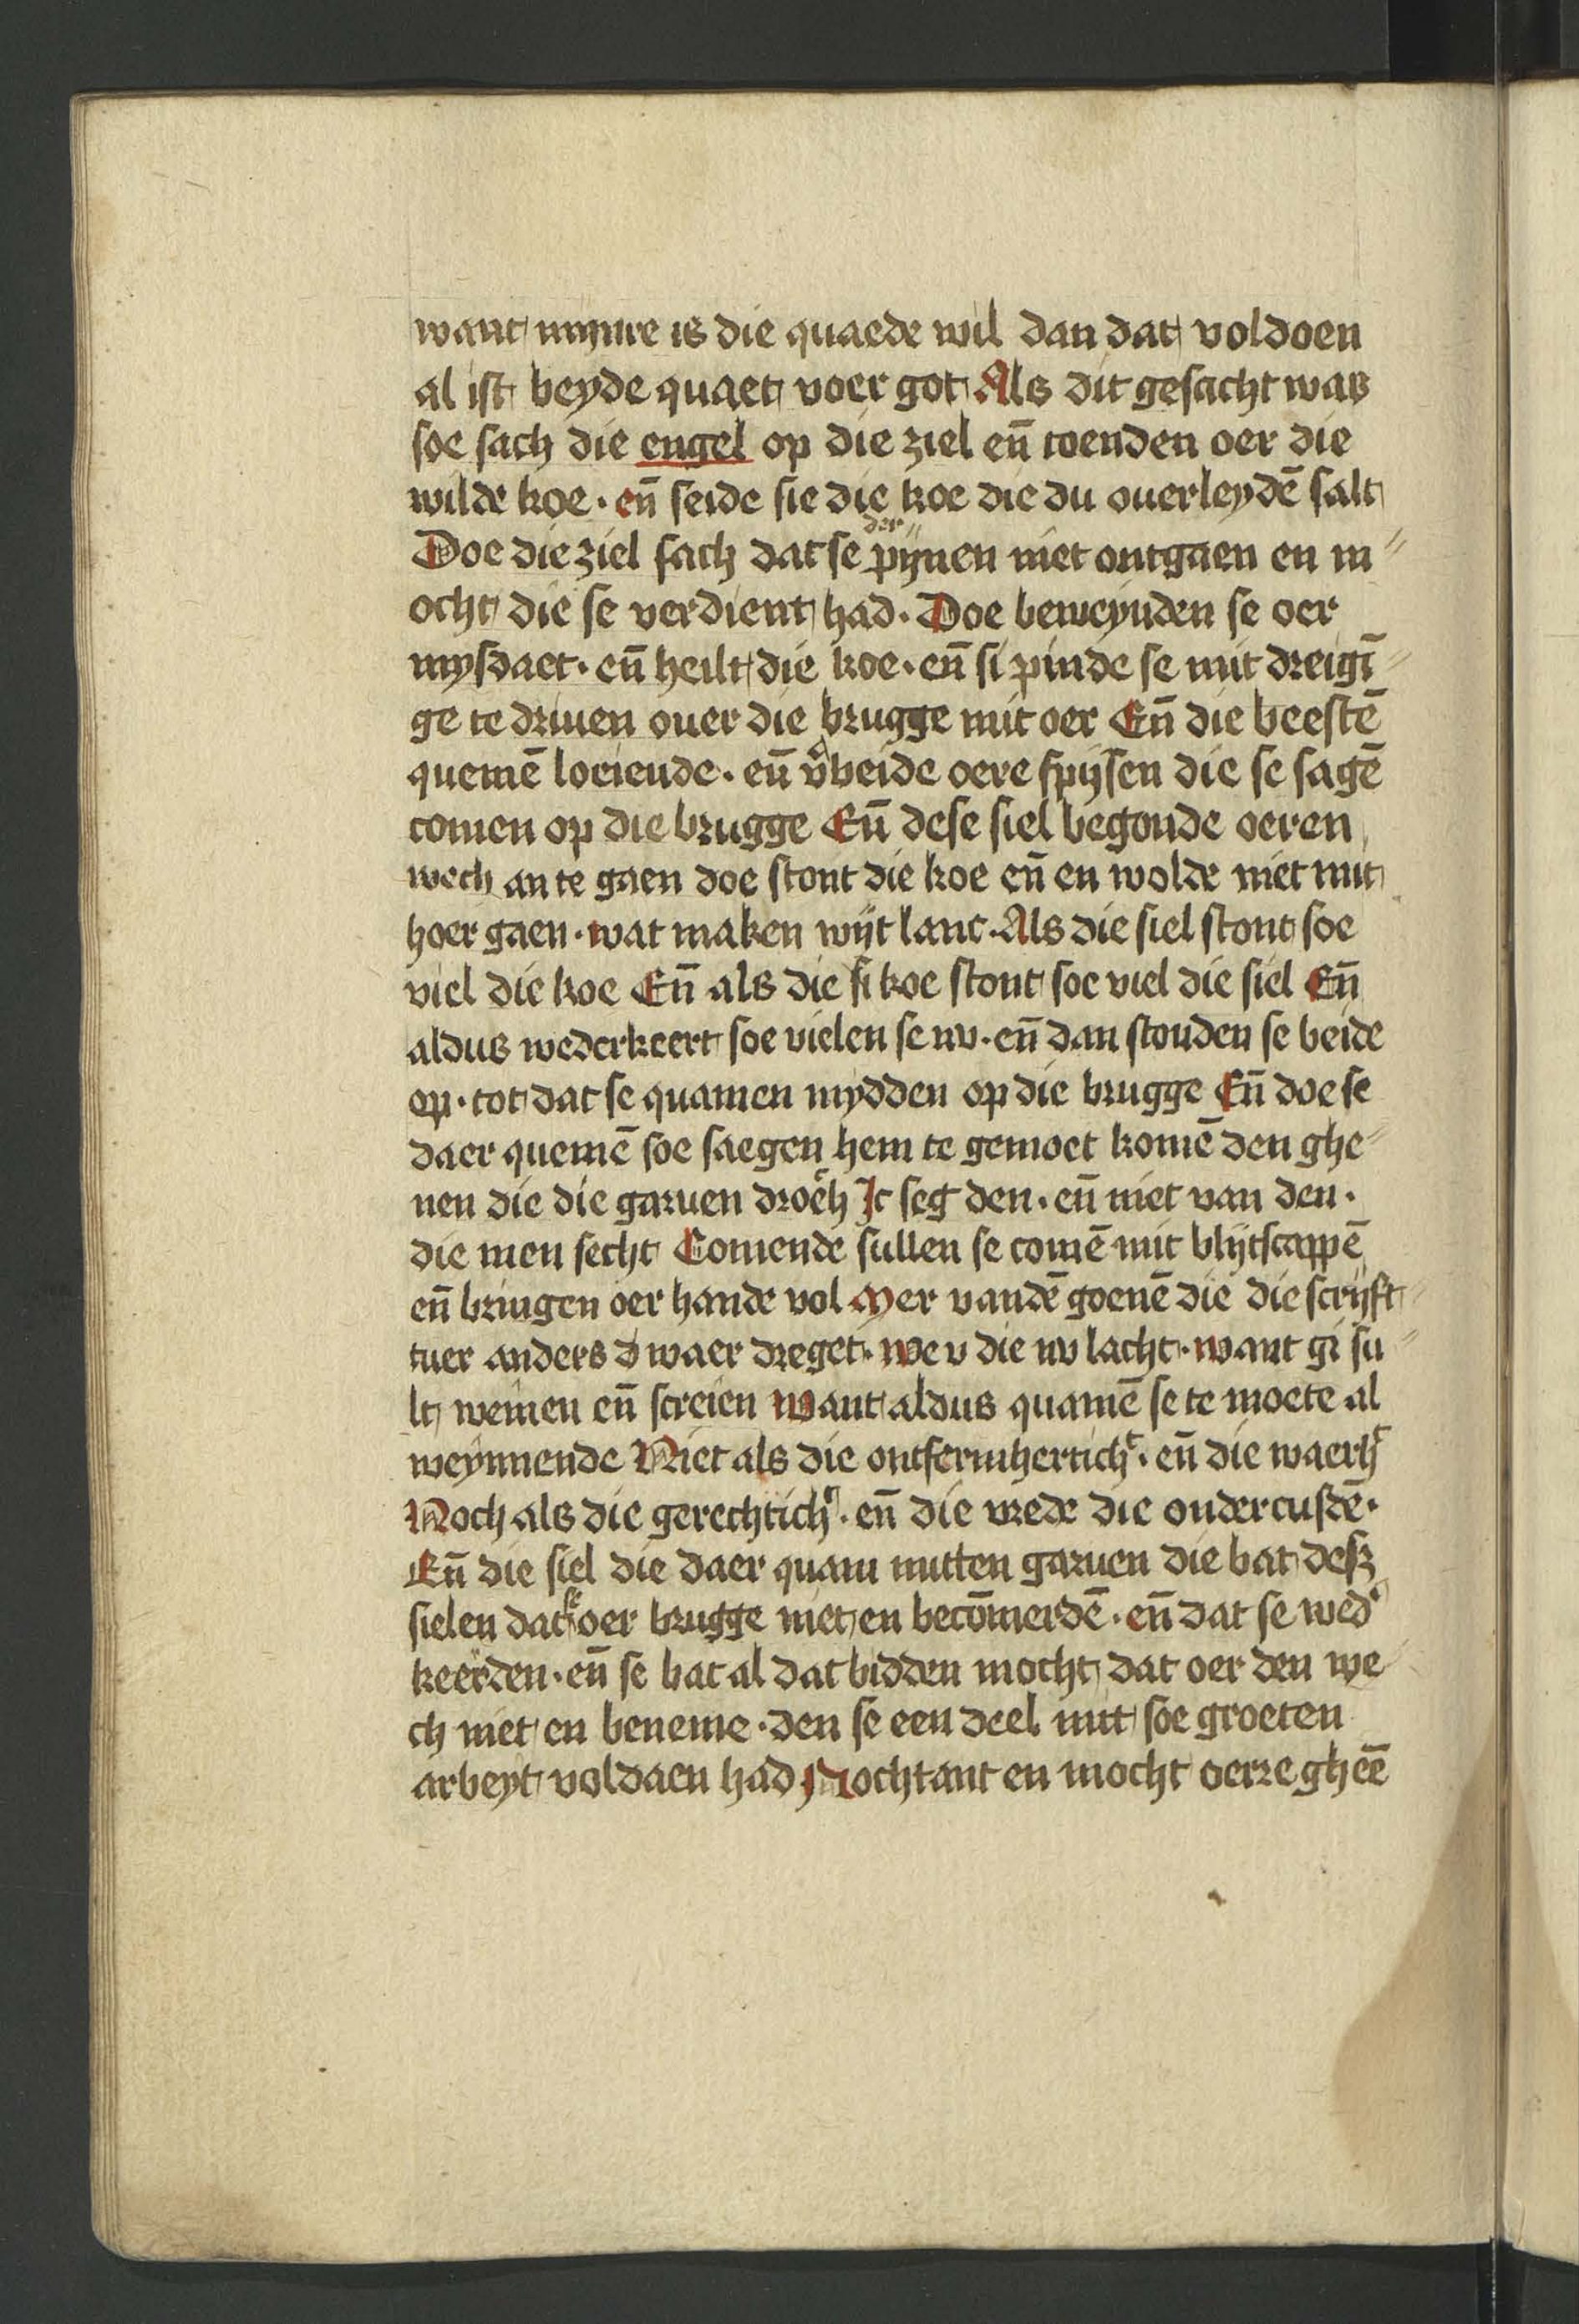 want mynre is die quaede wil dan dat voldoen
al ist beyde quaet voer got Als dit gesacht was
soe sach die engel op die ziel en̄ toenden oer die
wilde koe · en̄ seide sie die koe die du ouerleydē salt
Doe die ziel sach dat se der pijnen niet ontgaen en m〃
ocht die se verdient had · Doe beweynden se oer
mysdaet · en̄ heilt die koe · en̄ si pinde se mit dreigī〃
ge te driuen ouer die brugge mit oer En̄ die beestē
quemē loeiende · en̄ v̾beide oere spijsen die se sagē
comen op die brugge En̄ dese siel begonde oeren
wech an te gaen doe stont die koe en̄ en wolde niet mit
hoer gaen · wat maken wijt lanc · Als die siel stont soe
viel die koe En̄ als die si koe stont soe viel die siel En̄
aldus wederkeert soe vielen se nv · en̄ dan stonden se beide
op · tot dat se quamen mydden op die brugge En̄ doe se
daer quemē soe saegen hem te gemoet komē den ghe〃
nen die die garuen droeh Ic seg den · en̄ niet van den ·
die men secht Comende sullen se comē mit blijtscappē
en̄ bringen oer hande vol Mer vandē goenē die die scrijft〃
tuer anders d waer dreget · we v die nv lacht · want gi su〃
lt weinen en̄ screien want aldus quamē se te moete al
weynnende Niet als die ontfermhertichᵗ · en̄ die waerhᵗ
Noch als die gerechtichᵗ · en̄ die vrede die ondercustē ·
En̄ die siel die daer quam mitten garuen die bat desz
sielen dat se oer brugge niet en becōmerdē · en̄ dat se wed̾
keerden · en̄ se bat al dat bidden mocht dat oer den we
ch niet en beneme · den se een deel mit soe groeten
arbeyt voldaen had Nochtant en mocht oerre gheē